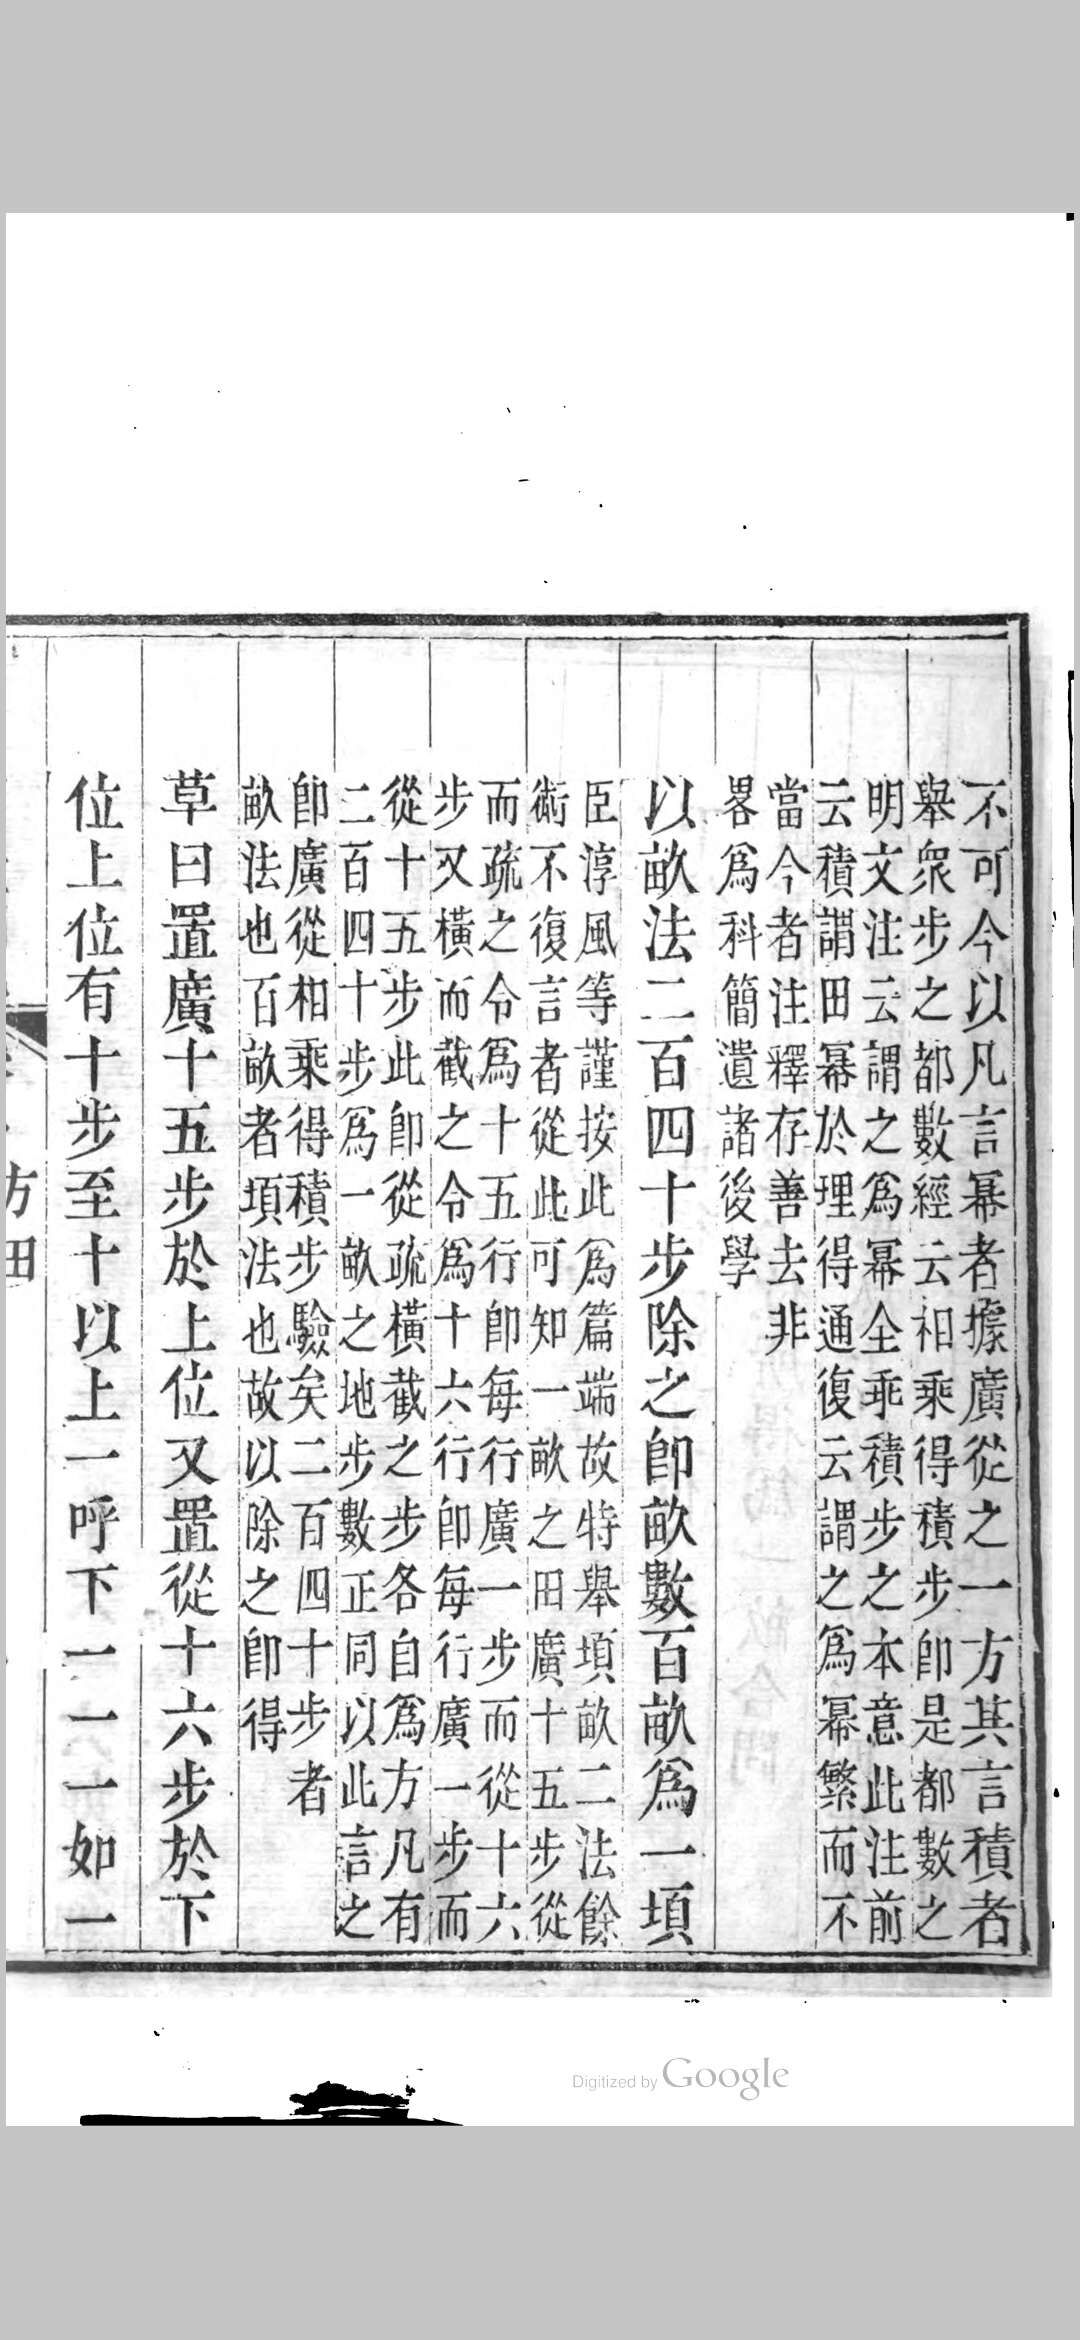 不可今以凡言冪者據廣從之一方其言積者
舉衆步之都數經云相乘得積步卽是都數之
明文注云謂之爲冪全乖積步之本意此注前
云積謂田冪於理得通復云謂之爲冪繁而不
當今者注釋存善去非
畧爲科簡遺諸後學
以畝法二百四十步除之卽畝數百畝爲一頃
臣淳風等謹按此爲篇端故特舉頃畝二法餘
術不復言者從此可知一畝之田廣十五步從
而疏之令爲十五行卽每行廣一步而從十六
步又橫而截之令爲十六行卽每行廣一步而
從十五步此卽從疏橫截之步各自爲方凡有
二百四十步爲一畝之地步數正同以此言之
卽廣從相乘得積步驗矣二百四十步者
畝法也百畝者頃法也故以除之卽得
草曰置廣十五步於上位又置從十六步於下
位上位有十步至十以上一呼下一一一如一
方田
Digitized by Google